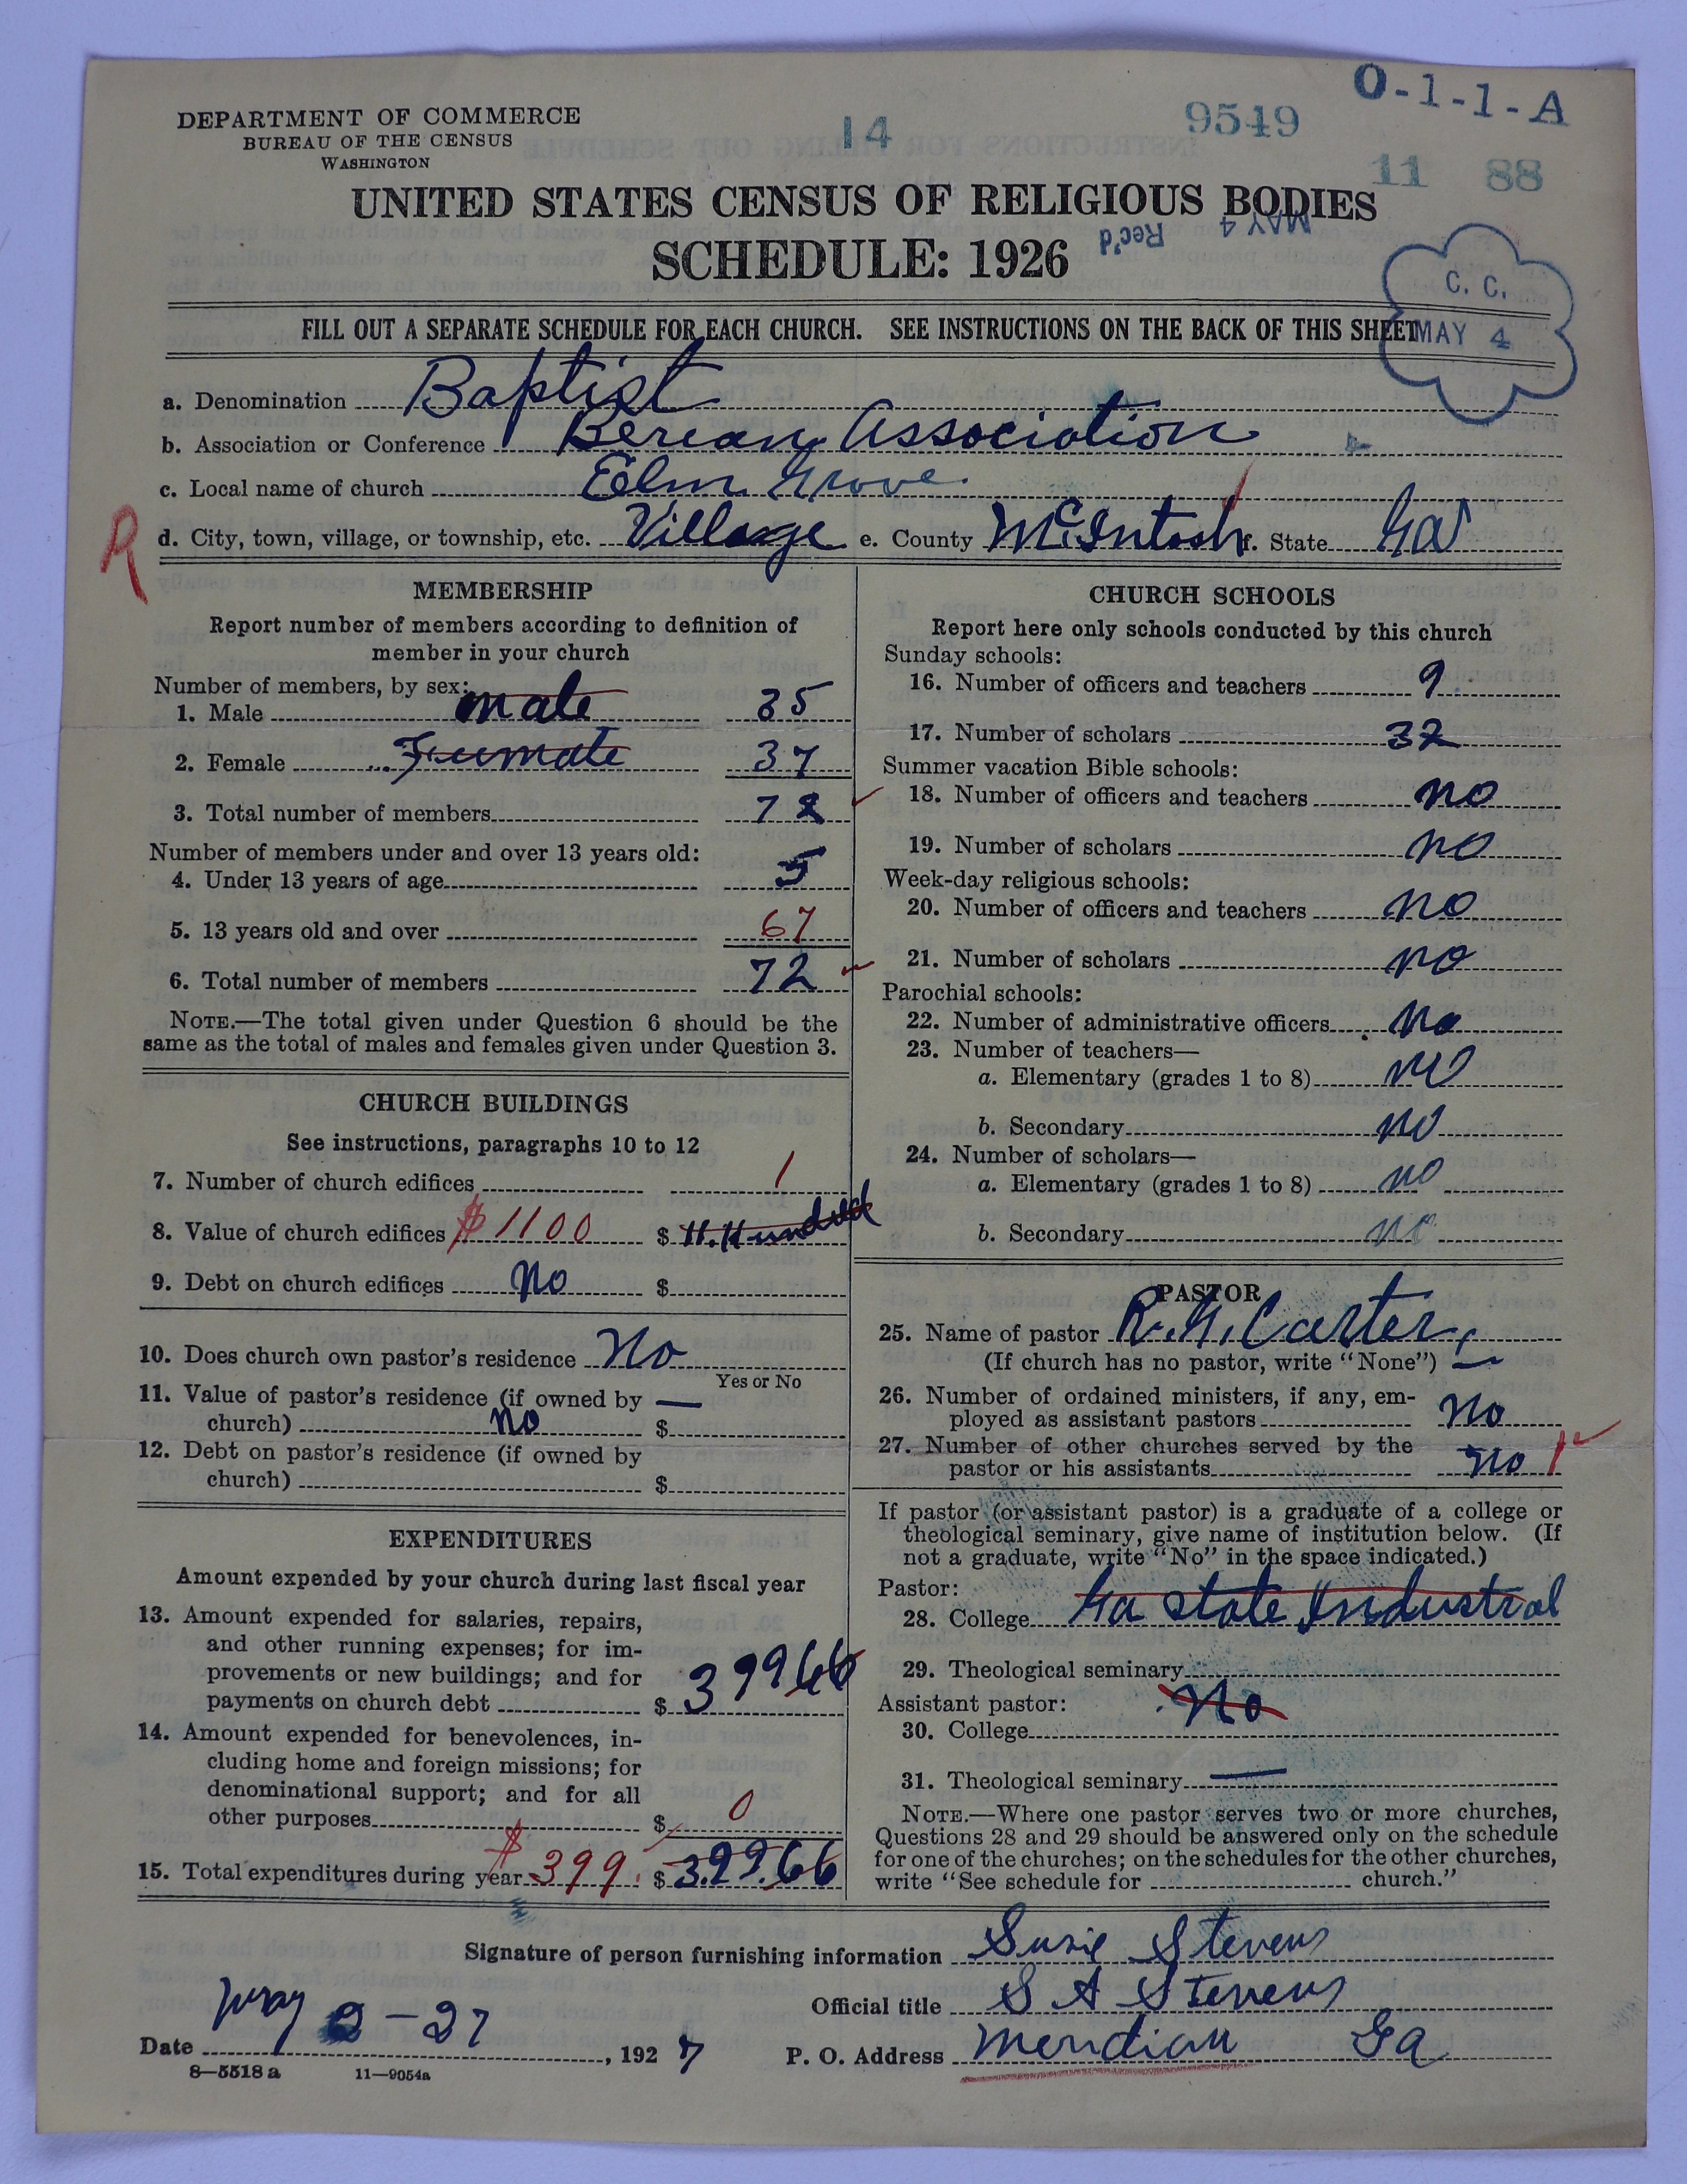 DEPARTMENT OF COMMERCE
BUREAU OF THE CENSUS
WASHINGTON
14
9549
O-1-1-A
11 88
UNITED STATES CENSUS OF RELIGIOUS BODIES
SCHEDULE: 1926
Rec'd MAY 4
C. C.
MAY 4
FILL OUT A SEPARATE SCHEDULE FOR EACH CHURCH. SEE INSTRUCTIONS ON THE BACK OF THIS SHEET
a. Denomination Baptist
b. Association or Conference Berean Association
c. Local name of church Elm Grove.
R
d. City, town, village, or township, etc. Village e. County McIntosh f. State Ga
MEMBERSHIP
Report number of members according to definition of
member in your church
Number of members, by sex:
1. Male male 35
2. Female Feumale 37
3. Total number of members 72
Number of members under and over 13 years old:
4. Under 13 years of age 5
5. 13 years old and over 67
6. Total number of members 72
NOTE.—The total given under Question 6 should be the
same as the total of males and females given under Question 3.
CHURCH BUILDINGS
See instructions, paragraphs 10 to 12
7. Number of church edifices 1
8. Value of church edifices $1100 $ 11.Hundred
9. Debt on church edifices No $
10. Does church own pastor's residence No
Yes or No
11. Value of pastor's residence (if owned by —
church) no $
12. Debt on pastor's residence (if owned by
church) $
EXPENDITURES
Amount expended by your church during last fiscal year
13. Amount expended for salaries, repairs,
and other running expenses; for im-
provements or new buildings; and for
payments on church debt $ 399 66
14. Amount expended for benevolences, in-
cluding home and foreign missions; for
denominational support; and for all
other purposes $ 0
15. Total expenditures during year $399. $ 399.66
CHURCH SCHOOLS
Report here only schools conducted by this church
Sunday schools:
16. Number of officers and teachers 9
17. Number of scholars 32
Summer vacation Bible schools:
18. Number of officers and teachers no
19. Number of scholars no
Week-day religious schools:
20. Number of officers and teachers no
21. Number of scholars no
Parochial schools:
22. Number of administrative officers no
23. Number of teachers—
a. Elementary (grades 1 to 8) no
b. Secondary no
24. Number of scholars—
a. Elementary (grades 1 to 8) no
b. Secondary no
PASTOR
25. Name of pastor Carter
(If church has no pastor, write "None") —
26. Number of ordained ministers, if any, em-
ployed as assistant pastors No
27. Number of other churches served by the
pastor or his assistants no
If pastor (or assistant pastor) is a graduate of a college or
theological seminary, give name of institution below. (If
not a graduate, write "No" in the space indicated.)
Pastor:
28. College Ga State Industrial
29. Theological seminary
Assistant pastor: No
30. College
31. Theological seminary —
NOTE.—Where one pastor serves two or more churches,
Questions 28 and 29 should be answered only on the schedule
for one of the churches; on the schedules for the other churches,
write "See schedule for church."
Signature of person furnishing information Susie Stevens
Official title S A Stevens
Date May 2-27, 1927
P. O. Address Meridian Ga
8—5518 a 11—9054a